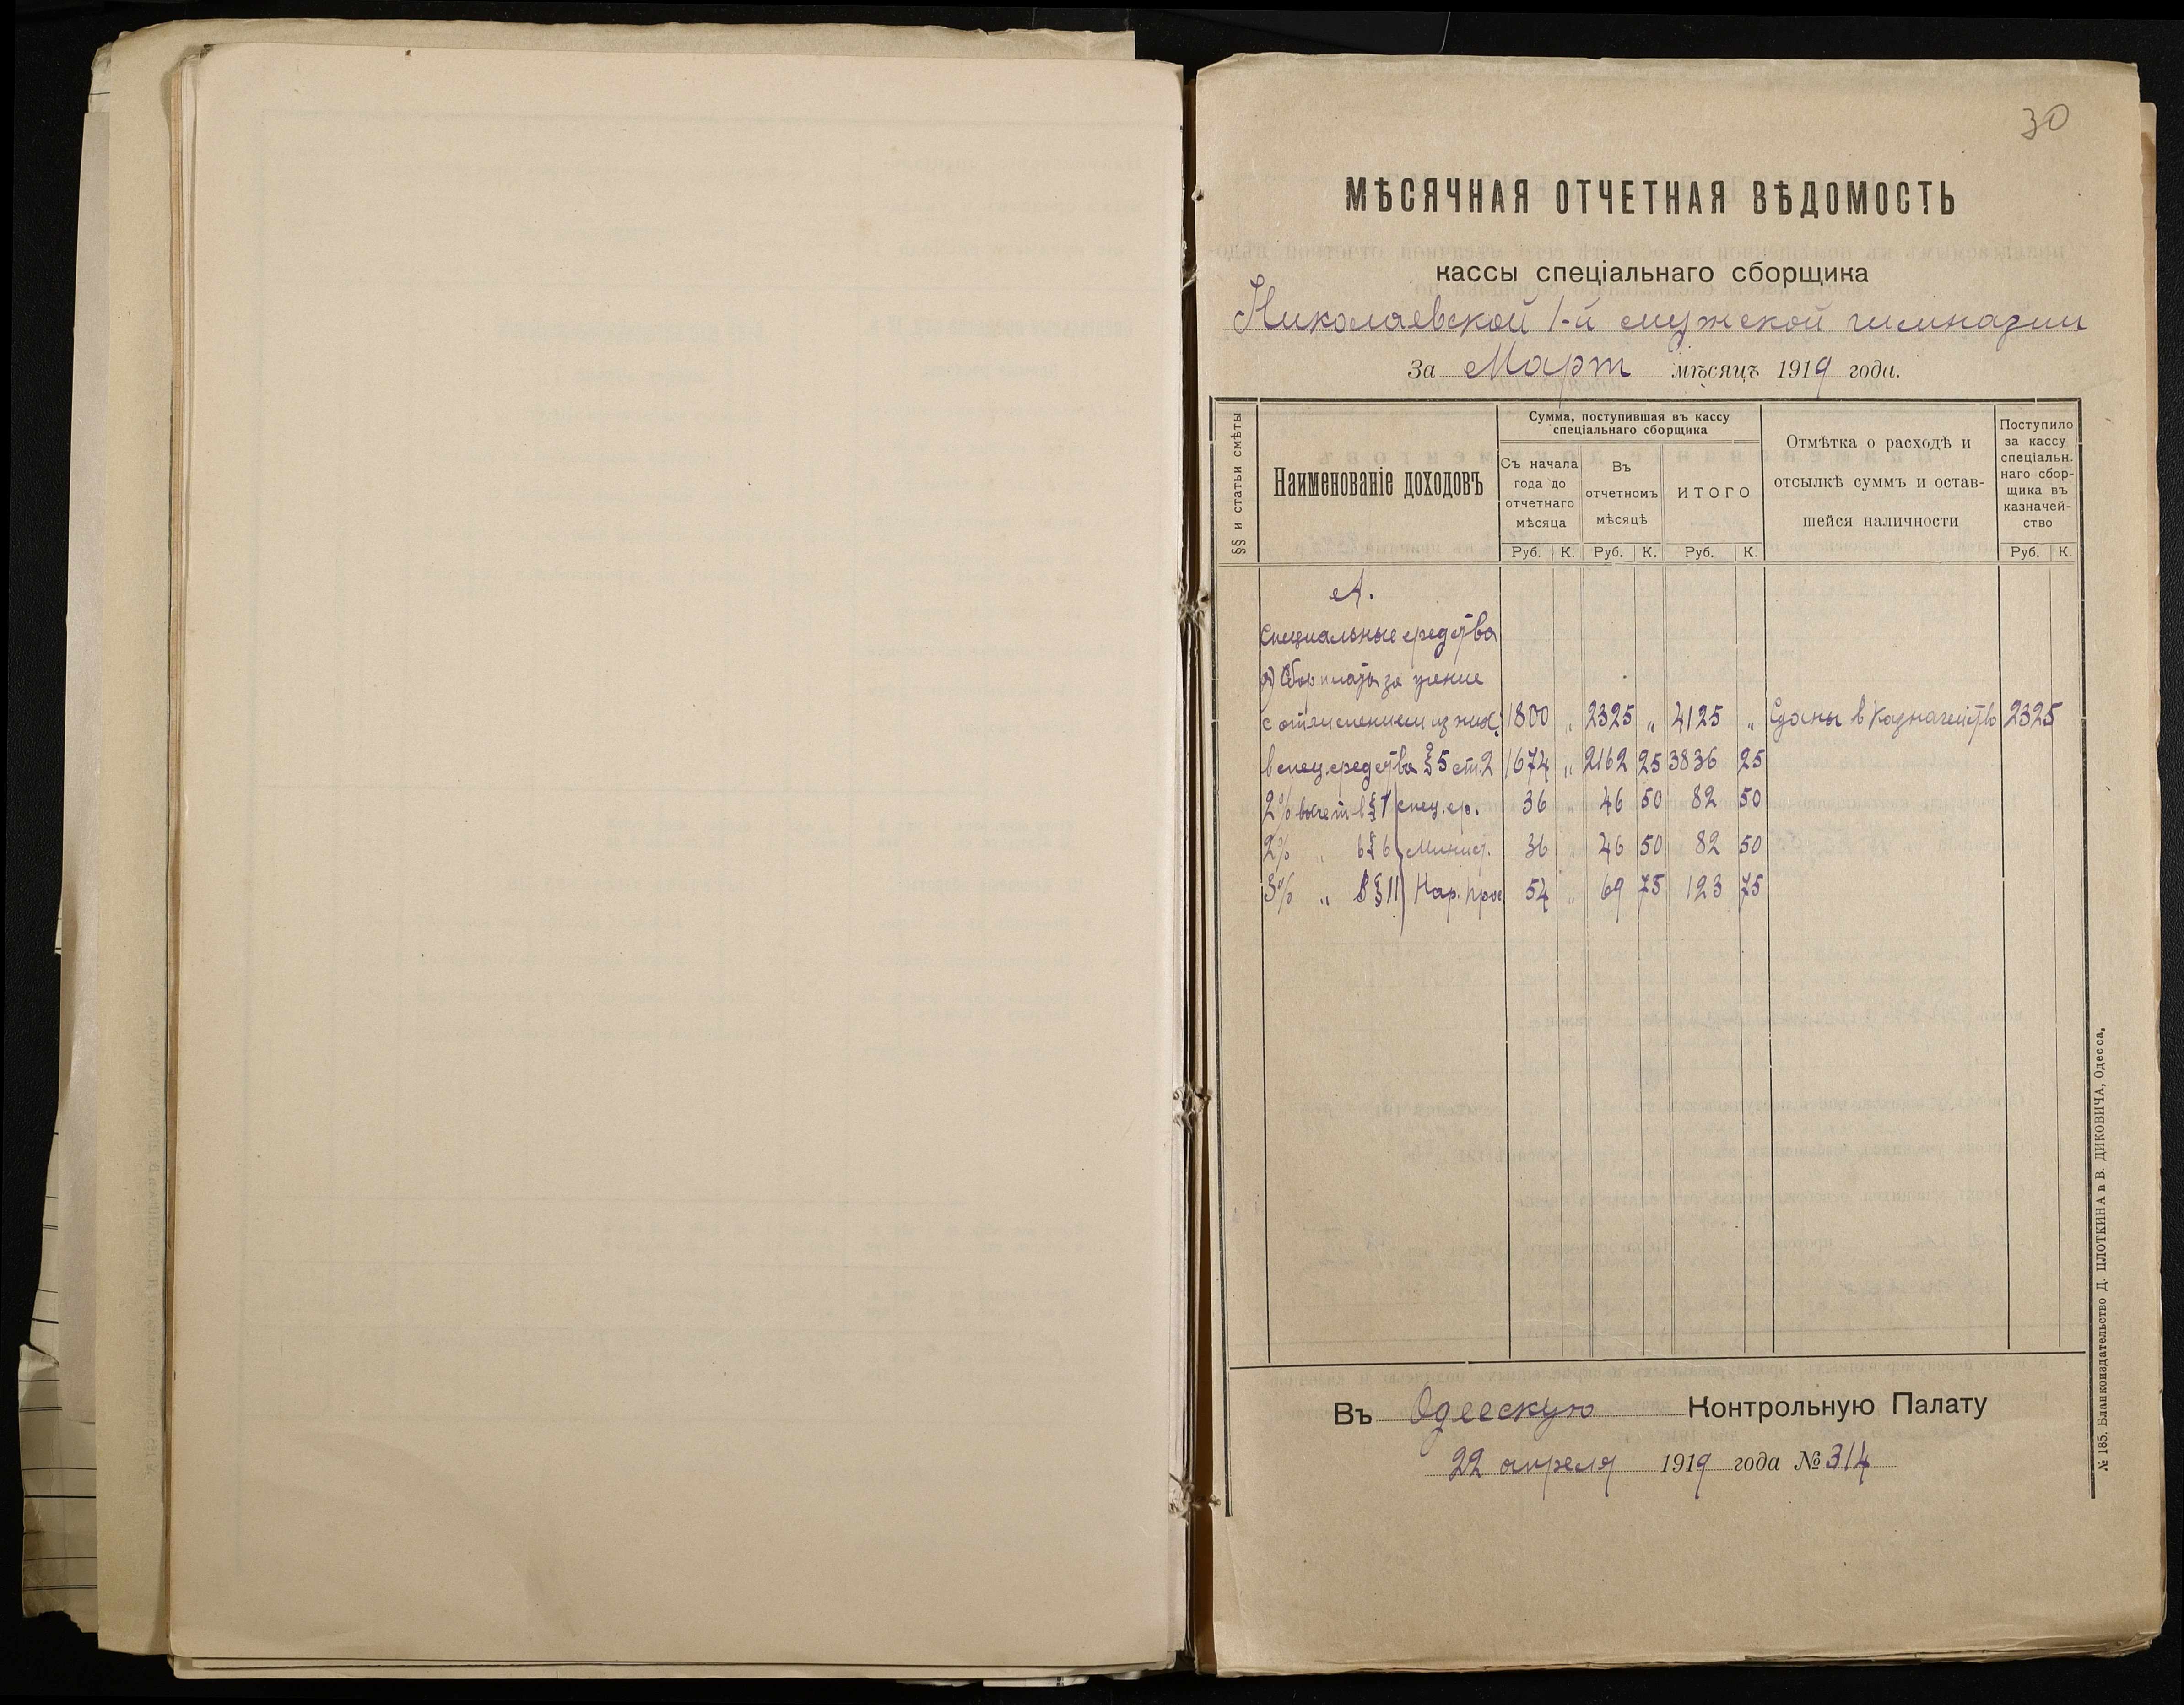 30
МѢСЯЧНАЯ ОТЧЕТНАЯ ВѢДОМОСТЬ
кассы спеціальнаго сборщика
Николаевской 1-й мужской гимназии
За Март мѣсяцъ 1919 года.
§§ и статьи смѣты
Наименованіе доходовъ
Сумма, поступившая въ кассу
спеціальнаго сборщика
Съ начала
года до
отчетнаго
мѣсяца
Въ
отчетномъ
мѣсяцѣ
ИТОГО
Отмѣтка о расходѣ и
отсылкѣ суммъ и остав-
шейся наличности
Поступило
за кассу
спеціальн.
наго сбор-
щика въ
казначей-
ство
Руб. К. Руб. К. Руб. К. Руб. К.
А.
Специальные средства
а) Сбор платы за учение
с отчислением из них: 1800 „ 2325 „ 4125 „ Сданы в Казначейство 2325
в спец. средства §5 ст.2 1674 „ 2162 25 3836 25
2% вычет в § 1 спец. ср. 36 „ 46 50 82 50
2% „ в § 6 Минист. 36 „ 46 50 82 50
3% „ в § 11 Нар. Прос 54 „ 69 75 123 75
Въ Одесскую Контрольную Палату
22 апреля 1919 года № 314
№ 185. Бланкоиздательство Д. ПЛОТКИНА и В. ДИКОВИЧА, Одесса.